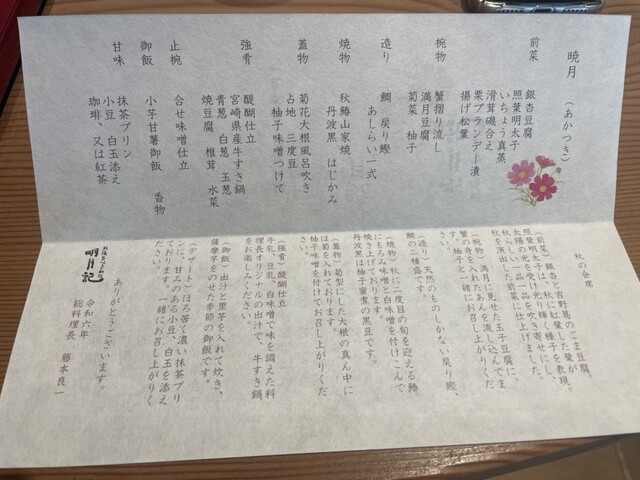 暁月 (あかつき)
前菜
銀杏豆腐
照葉明太子
いちょう真蒸
滑茸磯合え
栗ブランデー漬
揚げ松葉
椀物
蟹摺り流し
満月豆腐
菊菜 柚子
造り
鯛 戻り鰹
あしらい一式
焼物
秋鰆山家焼
丹波黒 はじかみ
蓋物
菊花大根風呂吹き
占地 三度豆
柚子味噌つけて
強肴
醍醐仕立
宮崎県産牛すき鍋
青葱 白葱 玉葱
焼豆腐 椎茸 水菜
止椀
合せ味噌仕立
御飯
小芋甘薯御飯 香物
甘味
抹茶プリン
小豆 白玉添え
珈琲 又は紅茶
秋の会席
(前菜)銀杏と吉野葛のごま豆腐、
照葉明太子は、秋に紅葉した葉が、
太陽の光で光り輝く様子を表現。
秋を演出した前菜に仕上げました。
(椀物)満月に見せた玉子豆腐に、
蟹の身を入れたあんを流し込んでま
す。柚子と一緒にお召し上がりくだ
さい。
(造り)天然のものしかない戻り鰹、
鯛の二種盛です。
(焼物)秋に二度目の旬を迎える鰆
にもろみ味噌と白味噌を付けこんで
焼き上げております。
丹波黒は柚子蜜煮の黒豆です。
(蓋物)菊型にした大根の真ん中に
は菊を入れております。
柚子味噌を付けてお召し上がりくだ
さい。
(強肴)醍醐仕立
牛乳、豆乳、白味噌で味を調えた料
理長オリジナルの出汁で、牛すき鍋
をお楽しみください。
(御飯)出汁と里芋を入れて炊き、
薩摩芋をのせた季節の御飯です。
(デザート)ほろ苦く濃い抹茶プリ
ンに、甘みのある小豆、白玉を添え
ております。一緒にお召し上がりく
ださい。
ありがとうございます。
令和六年
総料理長 藤本良一
明月記